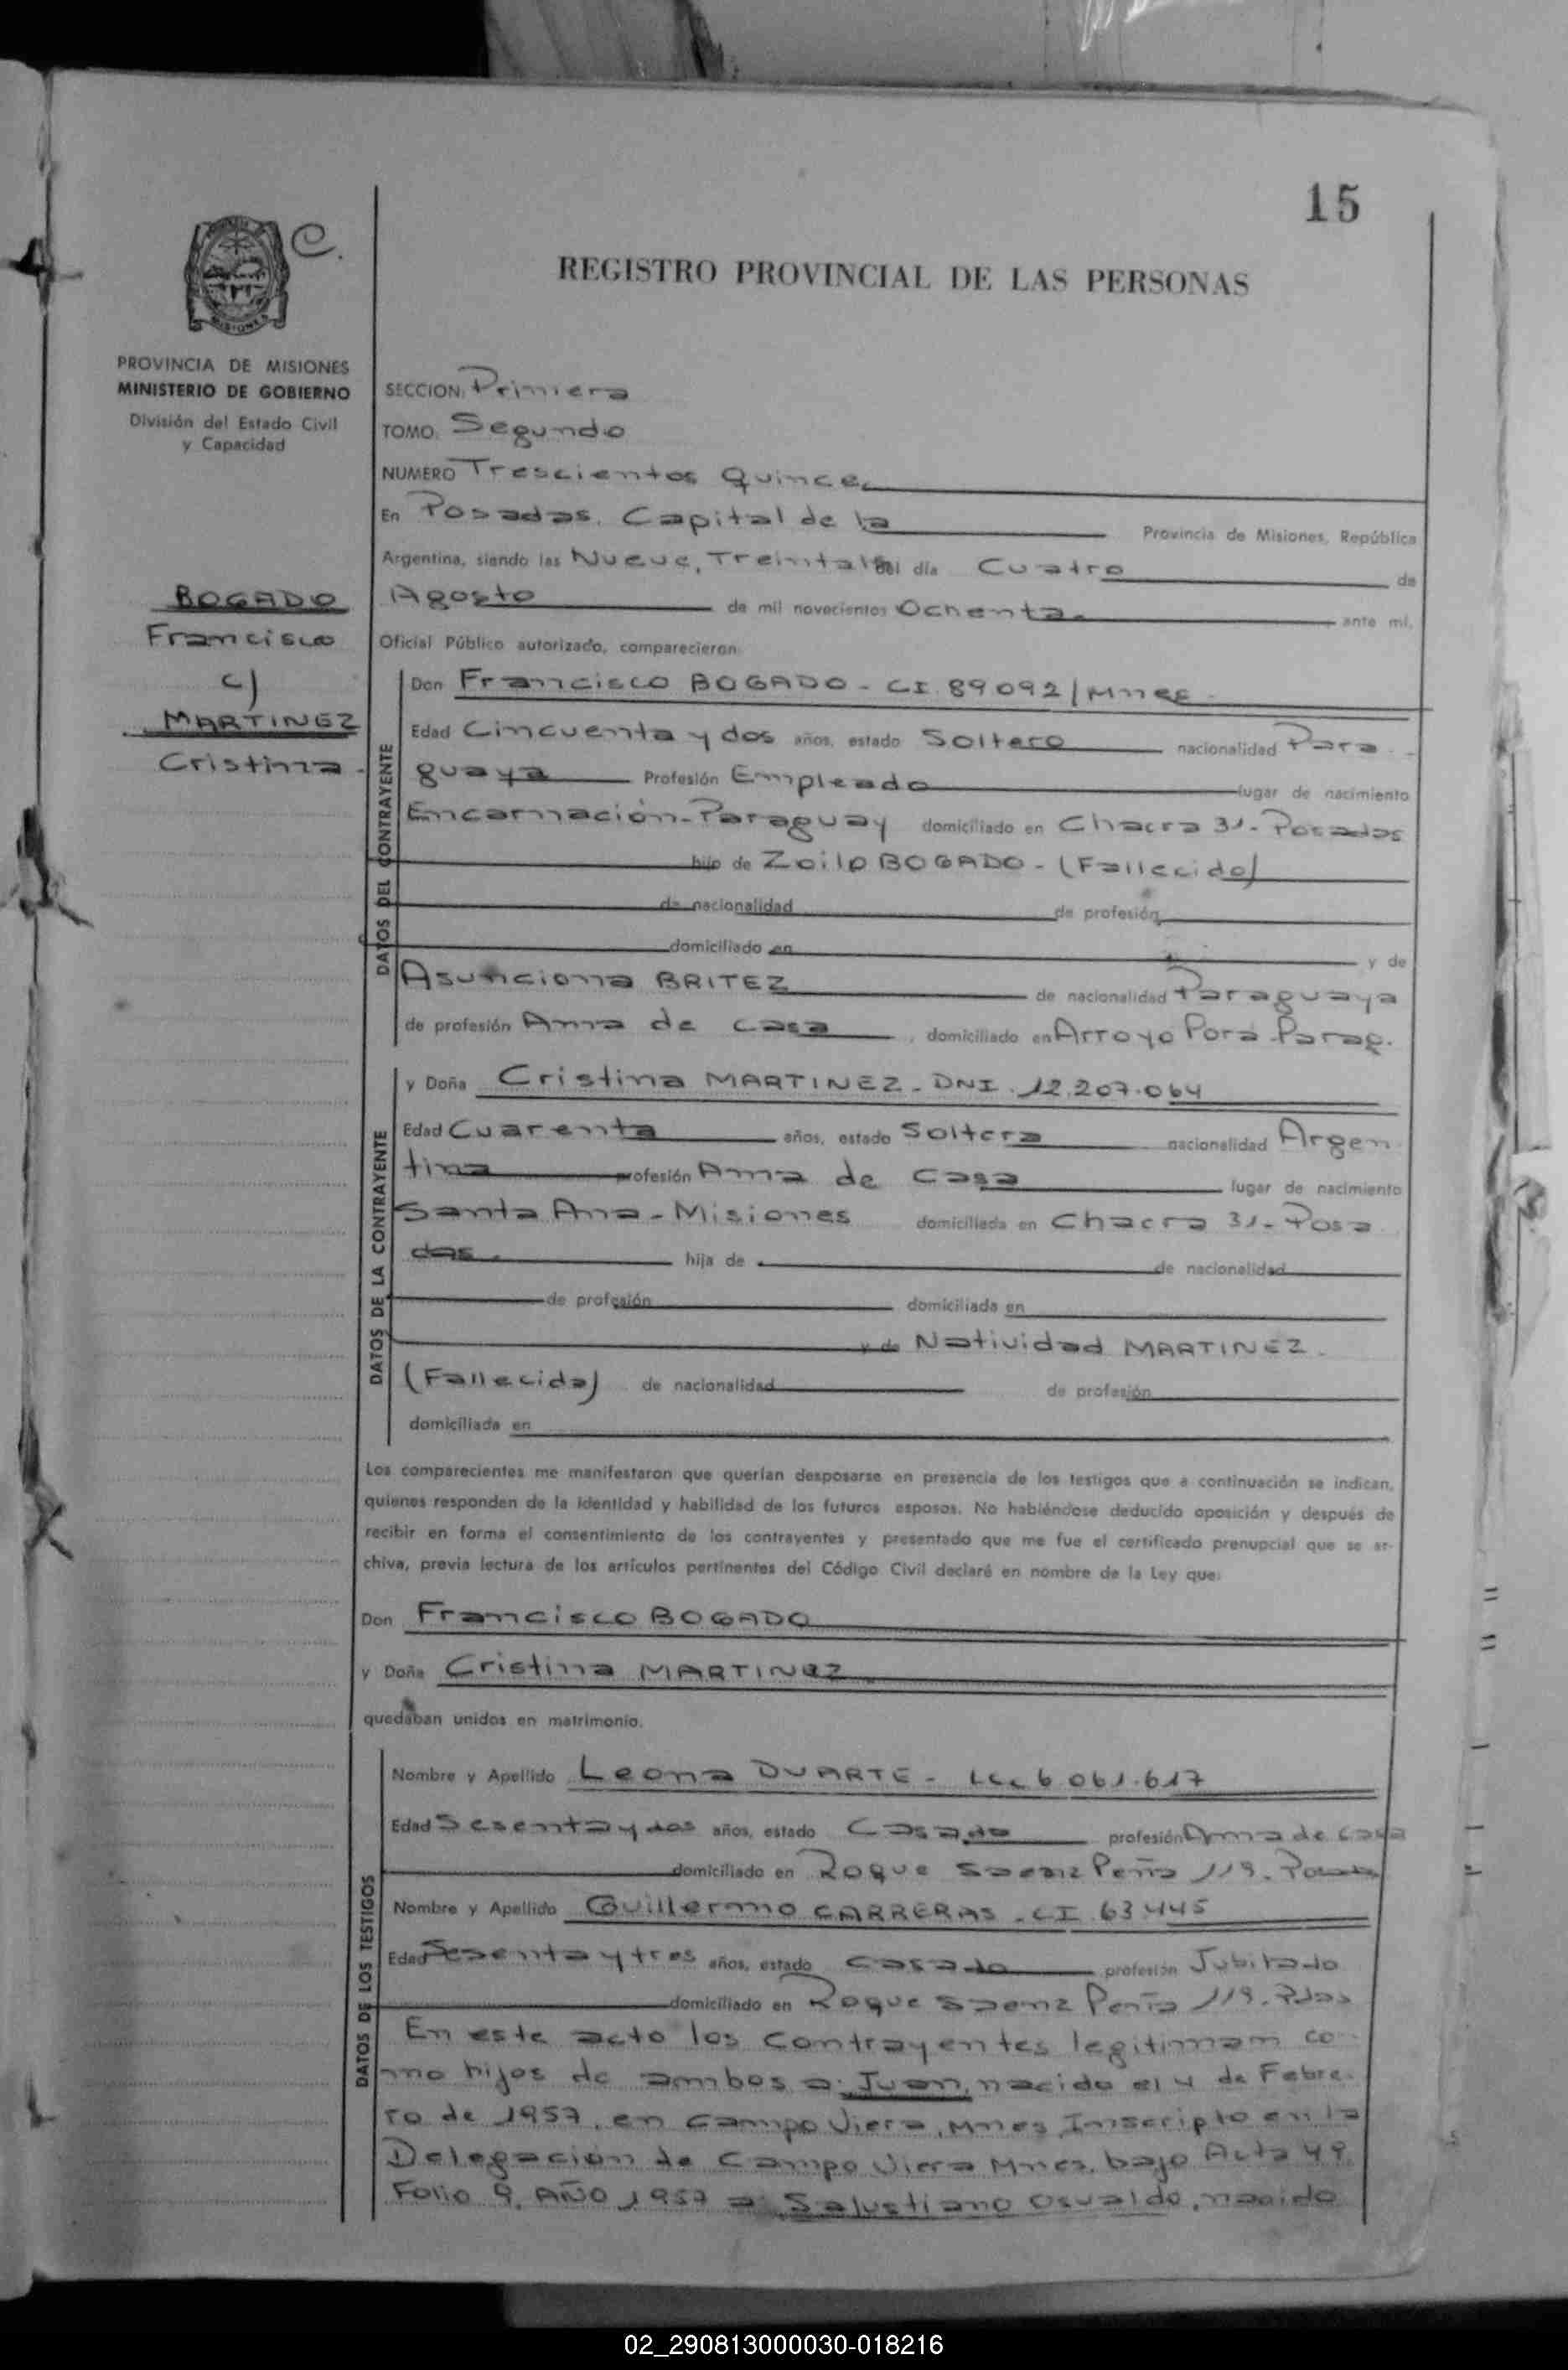 15
C.
REGISTRO PROVINCIAL DE LAS PERSONAS
MISIONES
PROVINCIA DE MISIONES
MINISTERIO DE GOBIERNO
División del Estado Civil
y Capacidad
BOGADO
Francisco
c/
MARTINEZ
Cristina
SECCION, Primera
TOMO, Segundo
NUMERO Trescientos Quince
En Posadas, Capital de la Provincia de Misiones, República
Argentina, siendo las Nueve, Treinta del día Cuatro de
Agosto de mil novecientos Ochenta ante mí,
Oficial Público autorizado, comparecieron
DATOS DEL CONTRAYENTE
Don Francisco BOGADO - CI. 89092/Mnes
Edad Cincuenta y dos años, estado Soltero nacionalidad Para
guaya Profesión Empleado lugar de nacimiento
Encarnación-Paraguay domiciliado en Chacra 31- Posadas
hijo de Zoilo BOGADO - (Fallecido)
de nacionalidad de profesión
domiciliado en y de
Asunciona BRITEZ de nacionalidad Paraguaya
de profesión Ama de casa, domiciliado en Arroyo Porá-Parag.
DATOS DE LA CONTRAYENTE
y Doña Cristina MARTINEZ - DNI. 12.207.064
Edad Cuarenta años, estado Soltera nacionalidad Argen
tina profesión Ama de Casa lugar de nacimiento
Santa Ana - Misiones domiciliada en Chacra 31- Posa
das. hija de de nacionalidad
de profesión domiciliada en
y de Natividad MARTINEZ.
(Fallecida) de nacionalidad de profesión
domiciliada en
Los comparecientes me manifestaron que querían desposarse en presencia de los testigos que a continuación se indican,
quienes responden de la identidad y habilidad de los futuros esposos. No habiéndose deducido oposición y después de
recibir en forma el consentimiento de los contrayentes y presentado que me fue el certificado prenupcial que se ar-
chiva, previa lectura de los artículos pertinentes del Código Civil declaré en nombre de la Ley que:
Don Francisco BOGADO
y Doña Cristina MARTINEZ
quedaban unidos en matrimonio.
DATOS DE LOS TESTIGOS
Nombre y Apellido Leona DUARTE - 6.061.617
Edad Sesenta y dos años, estado Casada profesión Ama de Casa
domiciliado en Roque Saenz Peña 119. Posadas
Nombre y Apellido Guillermo CARRERAS - CI 63.445
Edad Sesenta y tres años, estado casado profesión Jubilado
domiciliado en Roque Saenz Peña 119. Pdas
En este acto los contrayentes legitiman co-
mo hijos de ambos a: Juan, nacido el 4 de Febre-
ro de 1957, en Campo Viera, Mnes, Inscripto en la
Delegación de Campo Viera Mnes. bajo Acta 49
Folio 9, AÑO 1957 a: Salustiano Osvaldo, nacido
02_290813000030-018216